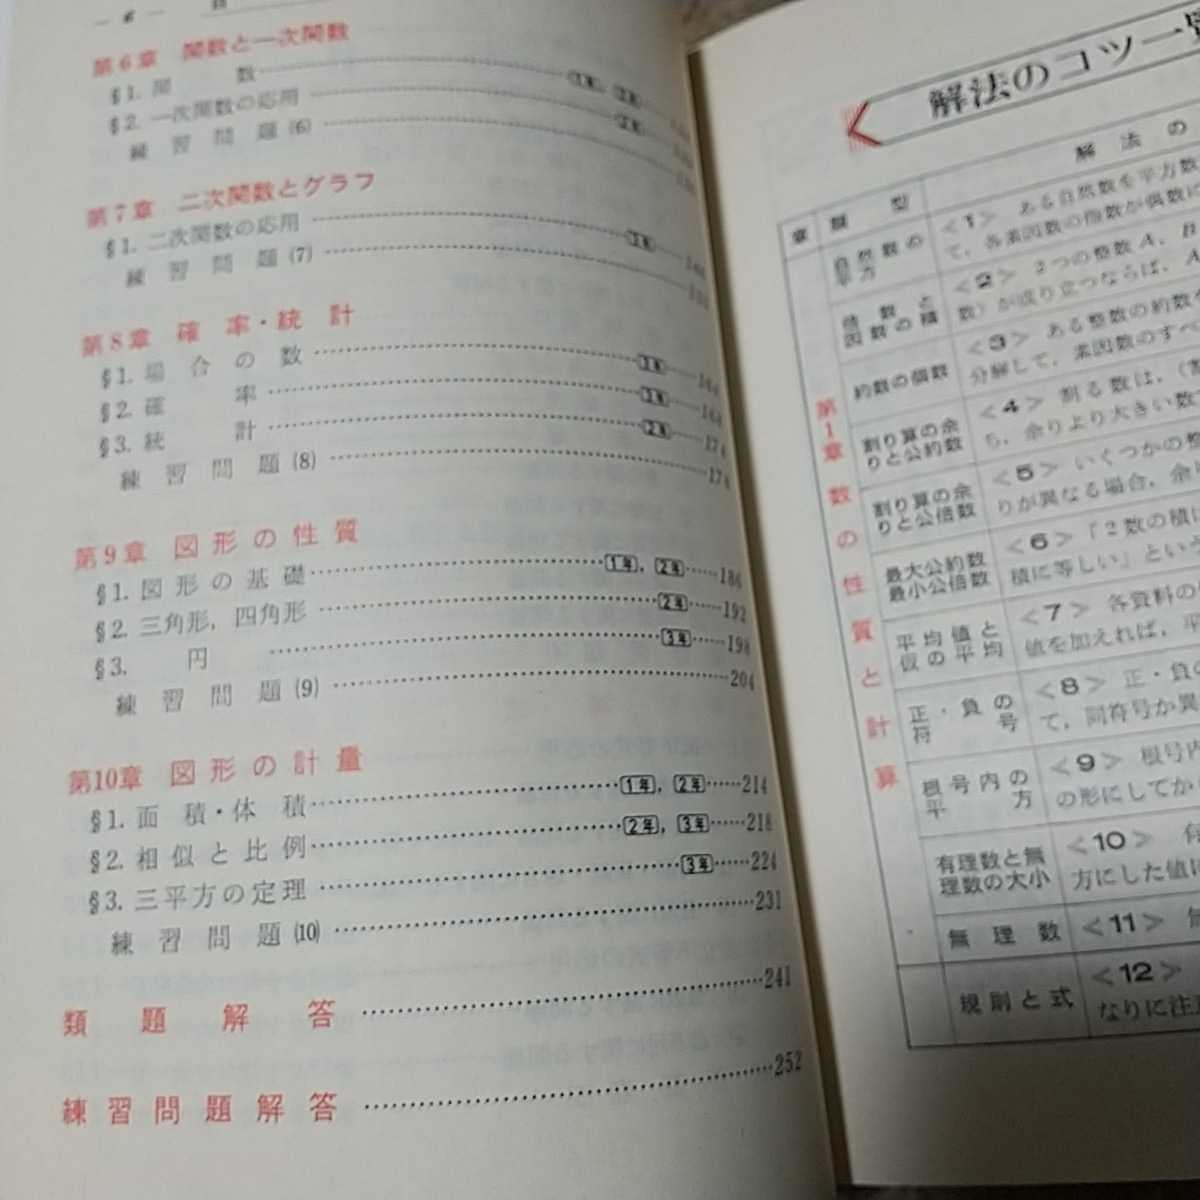 — 6 —
第6章 関数と一次関数
§1. 関 数 1年, 2年
§2. 一次関数の応用 2年
練習問題(6)
第7章 二次関数とグラフ
§1. 二次関数の応用 3年
練習問題(7)
第8章 確率・統計
§1. 場合の数 3年 164
§2. 確 率 3年 168
§3. 統 計 2年 174
練習問題(8)
第9章 図形の性質
§1. 図形の基礎 1年, 2年 186
§2. 三角形, 四角形 2年 192
§3. 円 3年 198
練習問題(9) 204
第10章 図形の計量
§1. 面積・体積 1年, 2年 214
§2. 相似と比例 2年, 3年 218
§3. 三平方の定理 3年 224
練習問題(10) 231
類題解答 241
練習問題解答 252
解法のコツ一覧
章 類型 解法の
第1章 数の性質と計算
自然数の平方
<1> ある自然数を平方数
て, 各素因数の指数が偶数に
倍数と因数の積
<2> 2つの整数A, B
数) が成り立つならば, A
約数の個数
<3> ある整数の約数
分解して, 素因数のすべ
割り算の余りと公約数
<4> 割る数は, (割
ち, 余りより大きい数
割り算の余りと公倍数
<5> いくつかの整
りが異なる場合, 余
最大公約数 最小公倍数
<6> 「2数の積は
積に等しい」という
平均値と仮の平均
<7> 各資料の
値を加えれば, 平
正・負の符号
<8> 正・負の
て, 同符号か異
根号内の平方
<9> 根号内
の形にしてか
有理数と無理数の大小
<10> 有
方にした値に
無理数
<11>
規則と式
<12>
なりに注